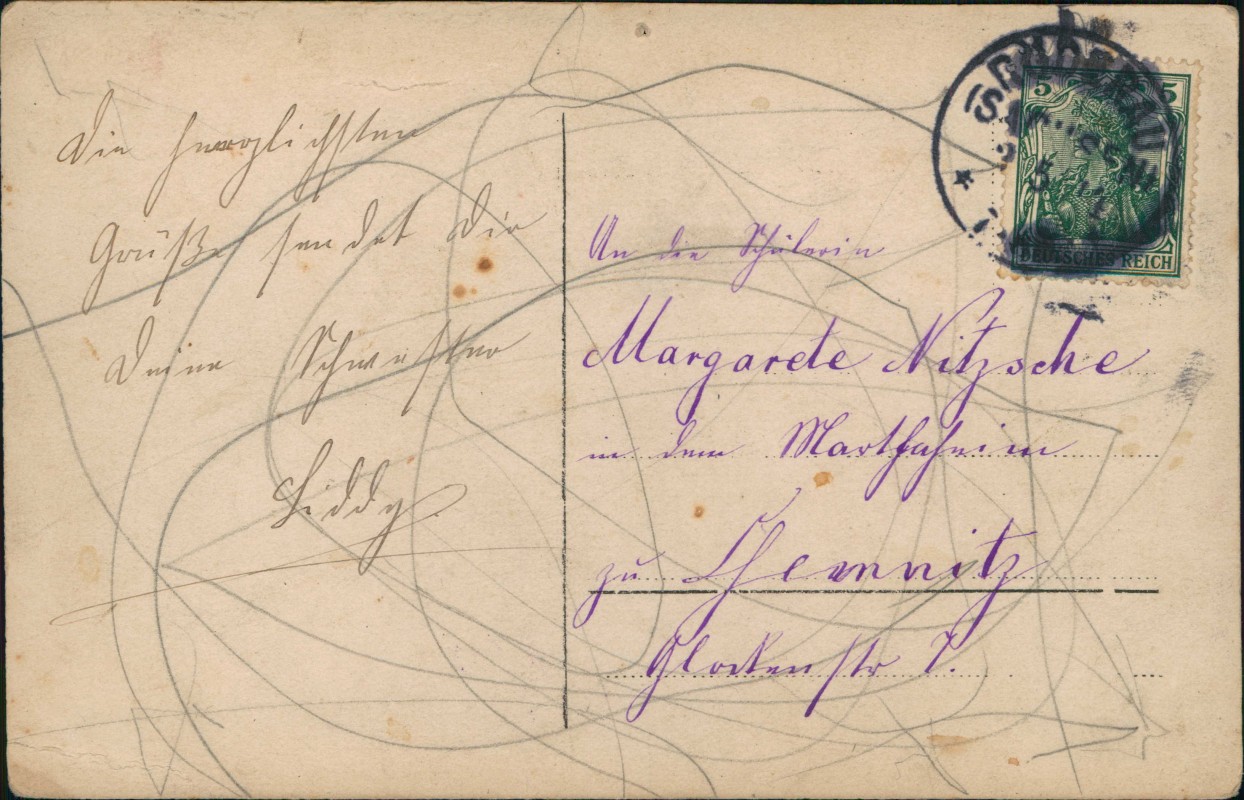 Die herzlichsten
Grüße sendet Dir
Deine Schwester
Liddy.
An die Schülerin
Margarete Nitzsche
in dem Marthaheim
zu Chemnitz
Glockenstr 7.
5 5
DEUTSCHES REICH